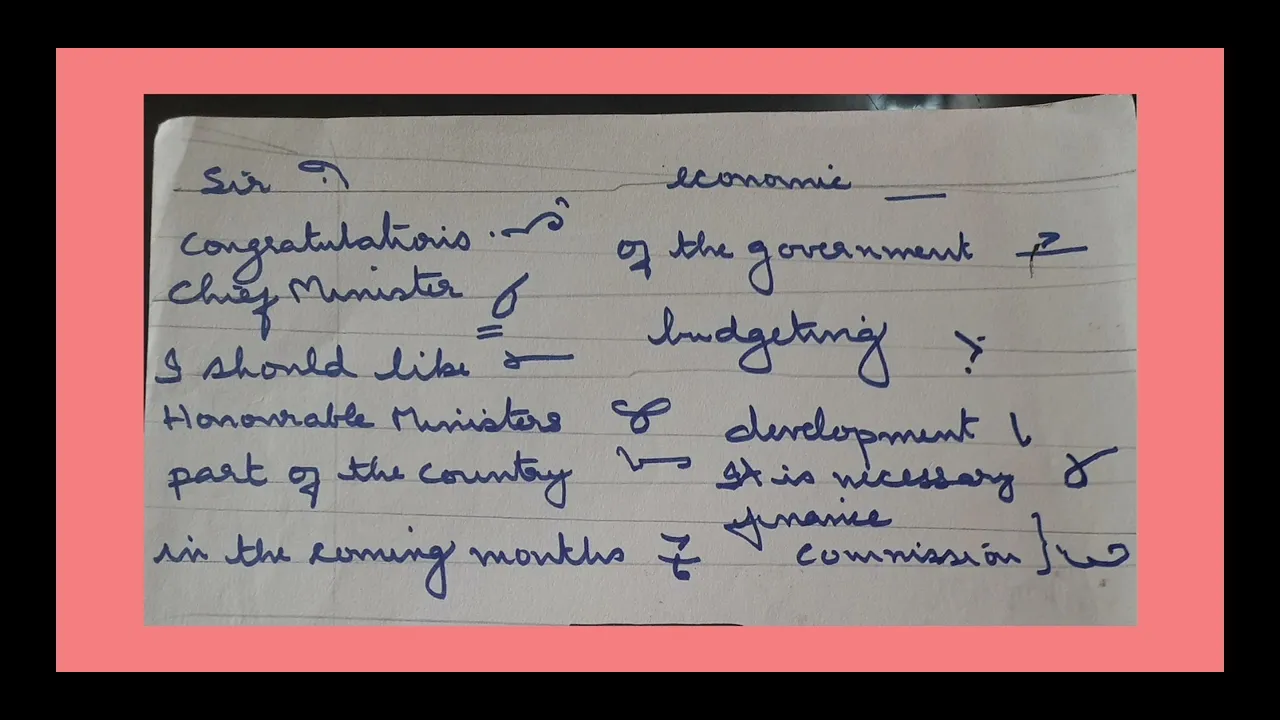 Sir
Congratulations.
Chief Minister
I should like
Honourable Ministers
part of the country
in the coming months
economic
of the government
budgeting
development
It is necessary
finance
commission